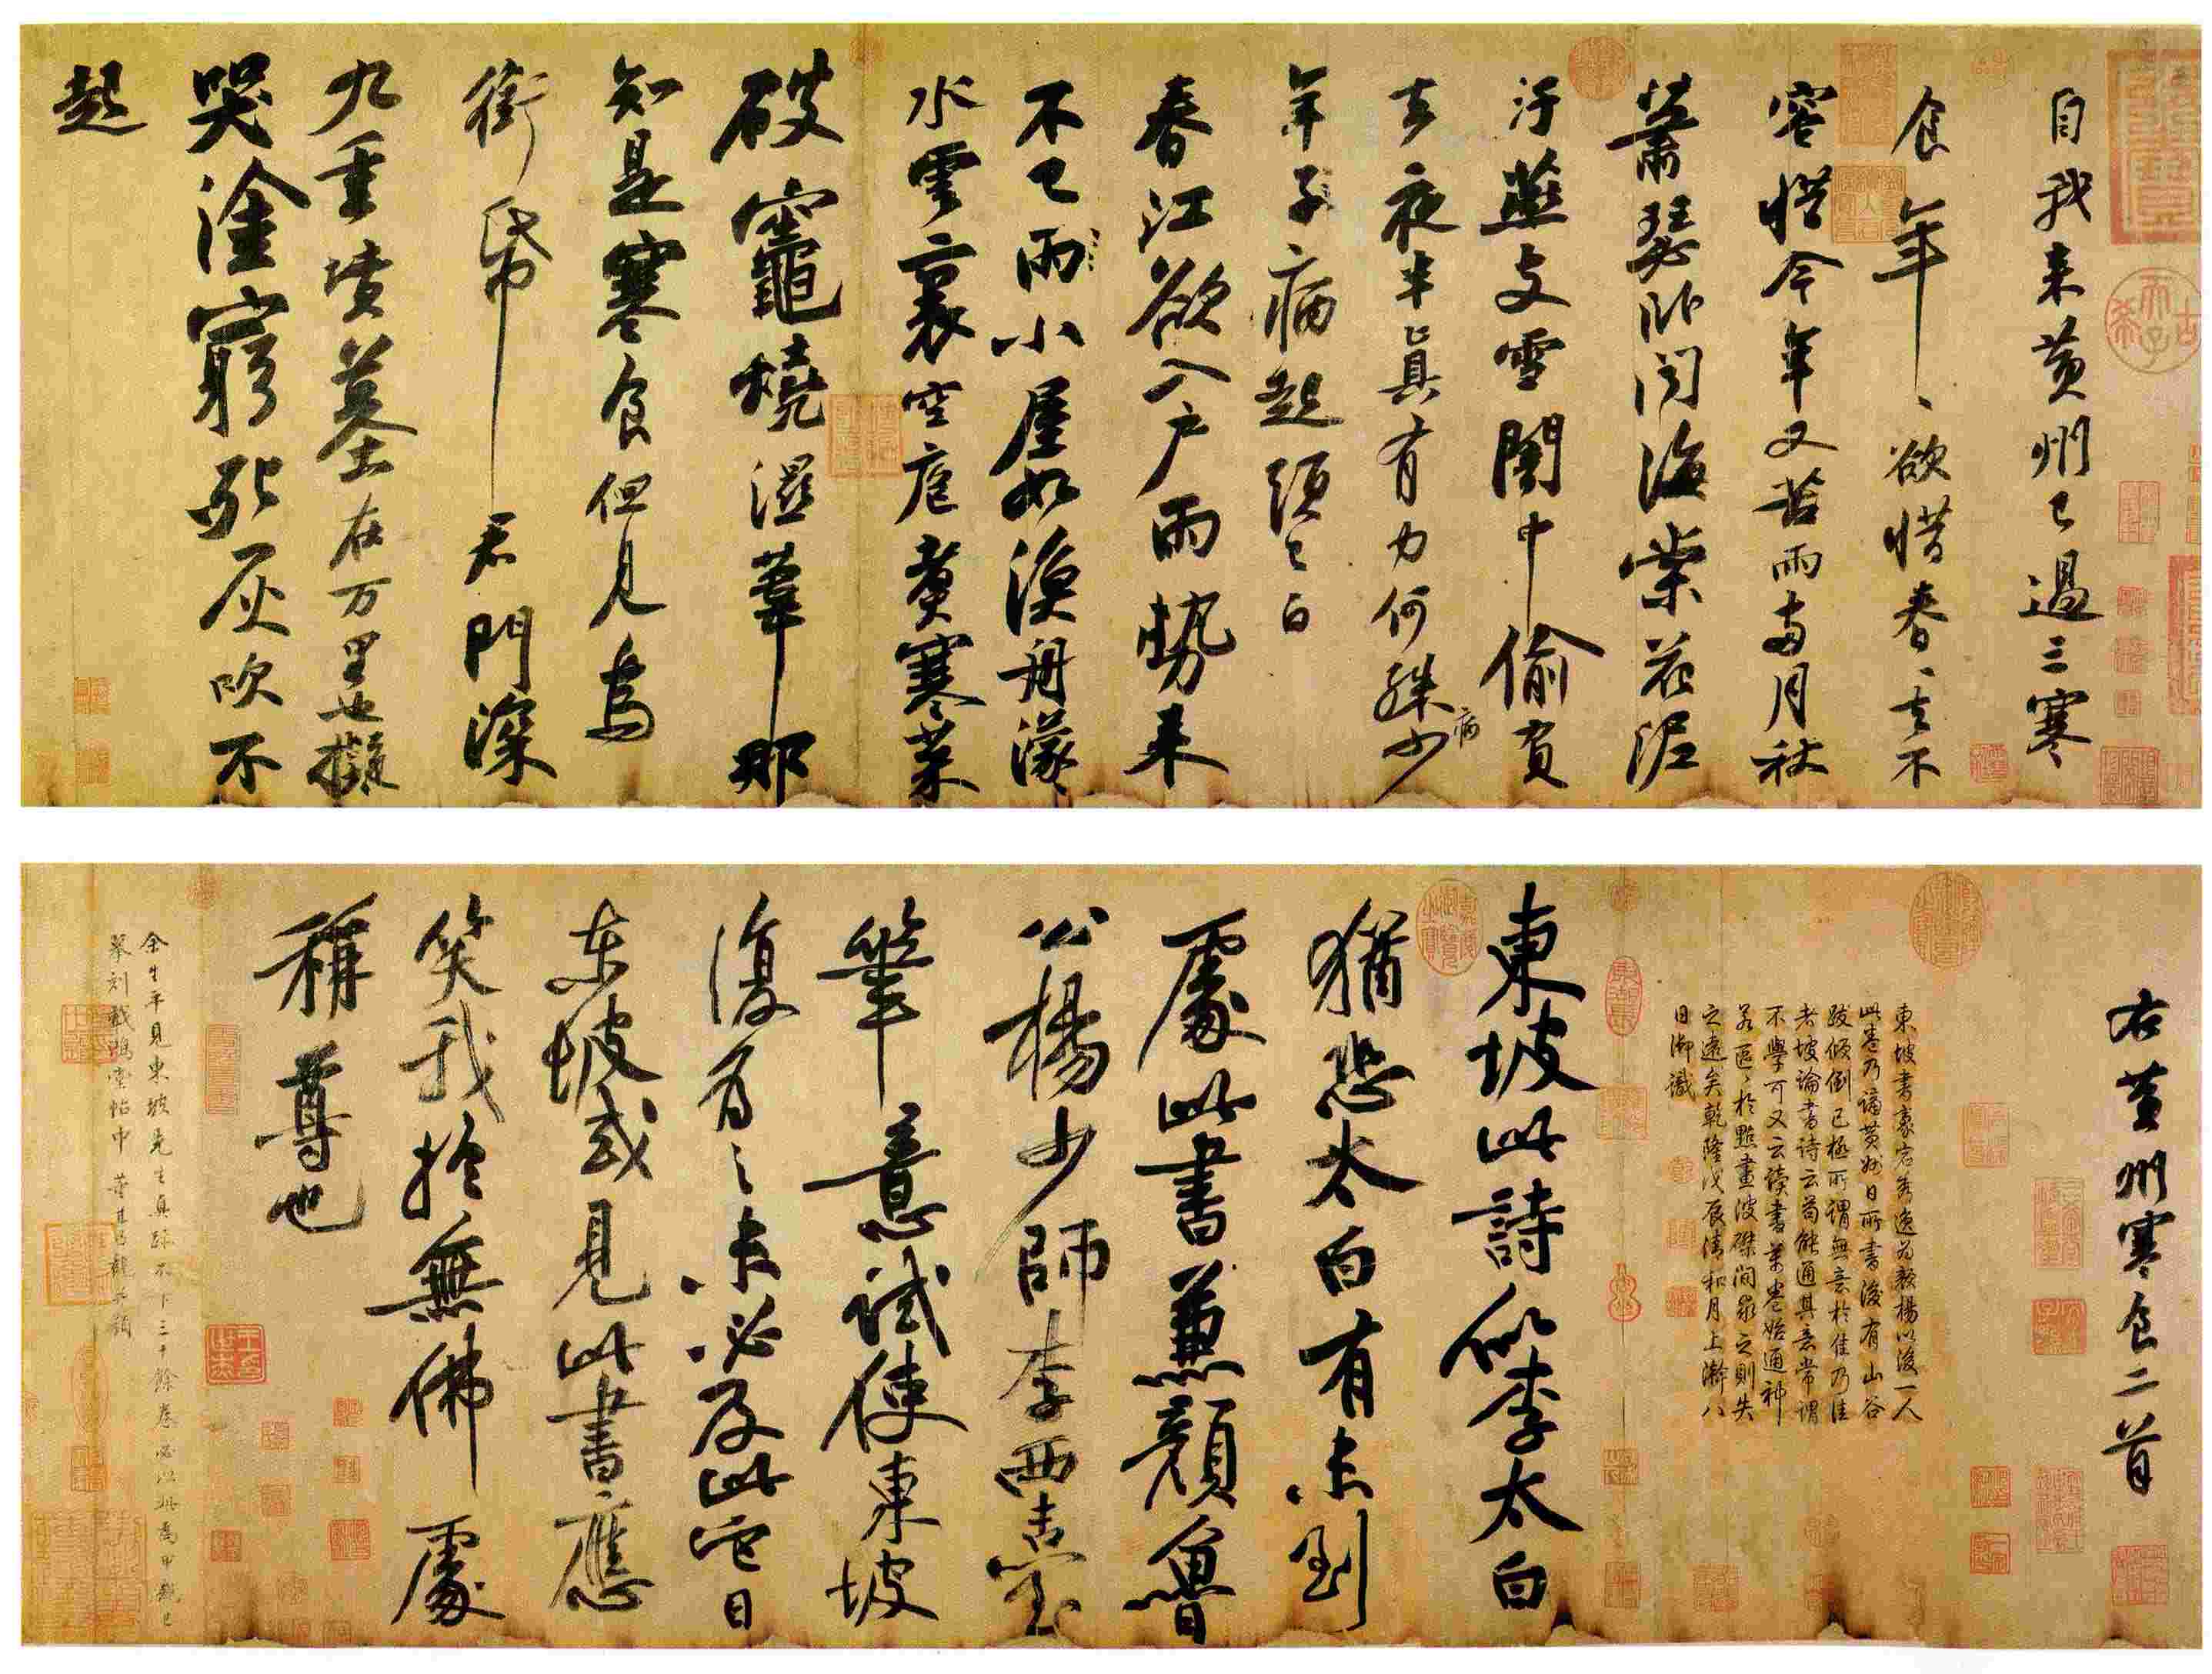 自我来黄州已過三寒
食年、欲惜春、去不
容惜今年又苦雨兩月秋
蕭瑟卧聞海棠花泥
汙燕支雪闇中偷負
去夜半真有力何殊少
病
年子病起頭已白
春江欲入户雨勢来
不已雨小屋如漁舟濛
水雲裏空庖煑寒菜
破竈燒濕葦那
知是寒食但見烏
銜帋君門深
九重墳墓在万里也擬
哭塗窮死灰吹不
起
右黄州寒食二首
東坡書豪宕秀逸為顏楊以後一人
此卷乃謫黄州日所書後有山谷
跋傾倒已極所謂無意於佳乃佳
者坡論書詩云苟能通其意常謂
不學可又云读書萬卷始通神
若區、於點畫波磔間求之則失
之遠矣乾隆戊辰清和月上澣八
日御識
東坡此詩似李太白
猶恐太白有未到
處此書兼顏魯
公楊少師李西臺
筆意試使東坡
復為之未必及此它日
东坡或見此書應
笑我於無佛處
稱尊也
余生平見東坡先生真跡不下三十餘卷必以此為甲觀已
摹刻戲鴻堂帖中 董其昌觀并題